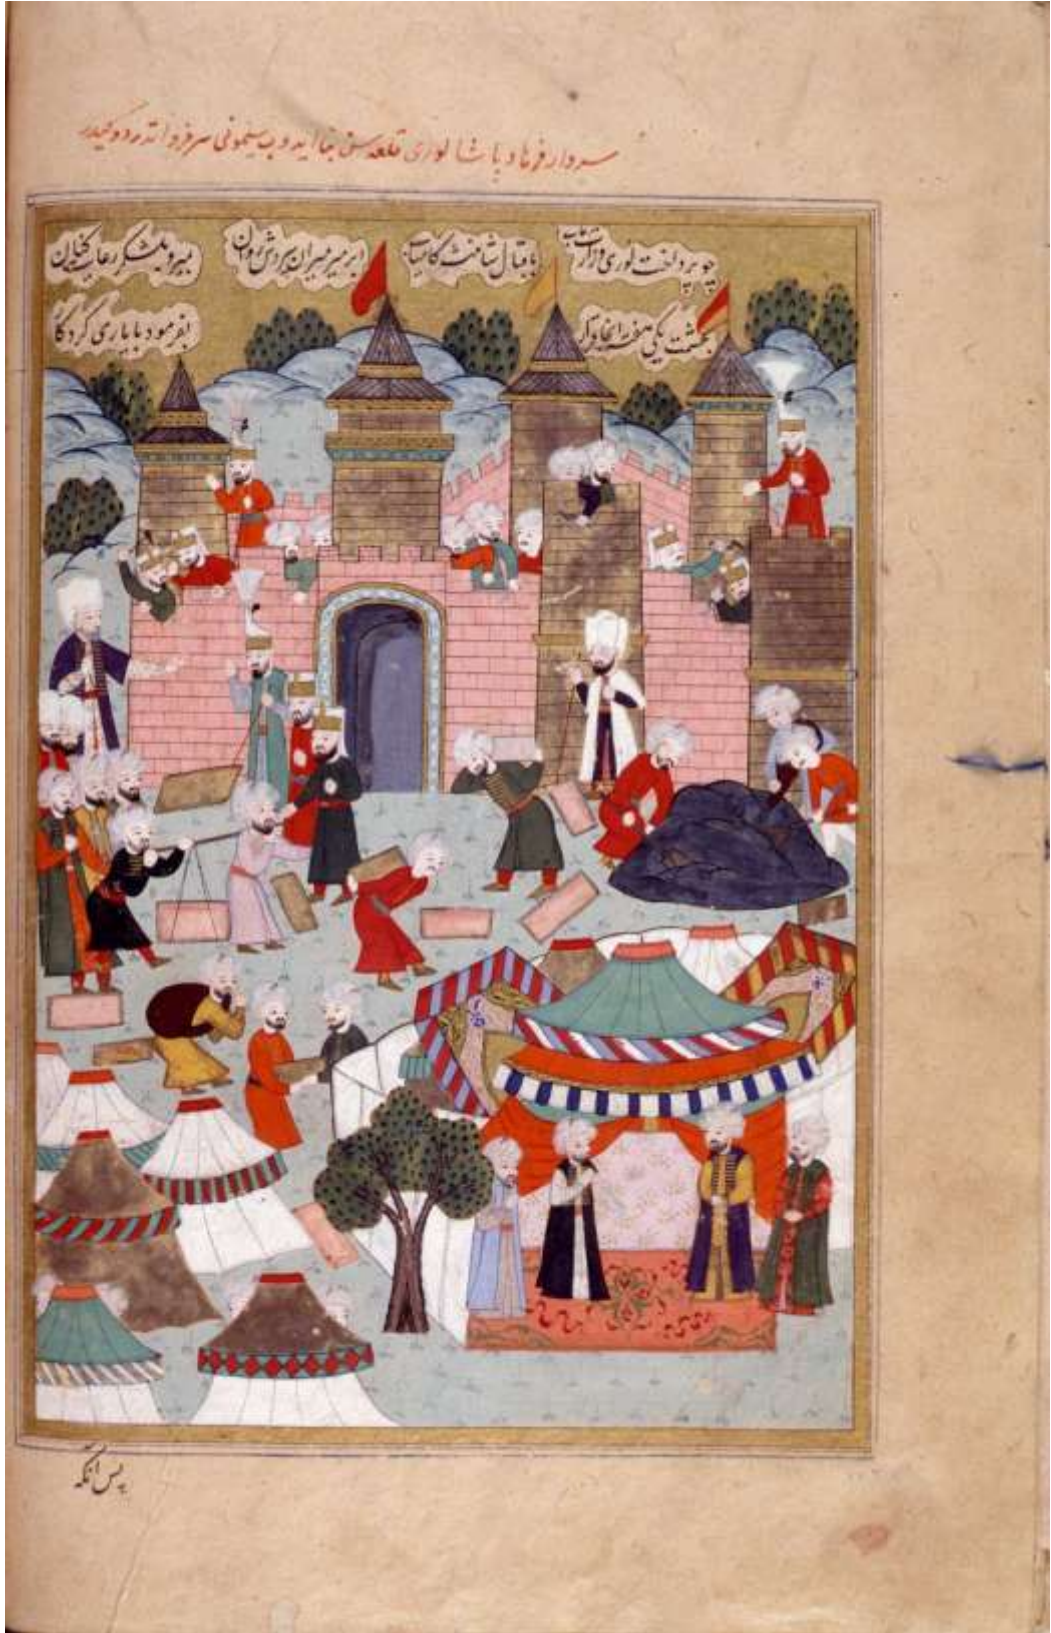 سردار فرهاد پاشا لوری قلعه سن بنا ایدوب سیمونی سرفرو اتدردوکیدر
چو پرداخت لوری وزارت
باقبال شاهنشه کامیاب
ابر میر میران بیردش روان
بیرو بلشکر رعایت کنان
بکشت یکی هفته انجا
بفرمود با یاری کردکار
پس آنکه